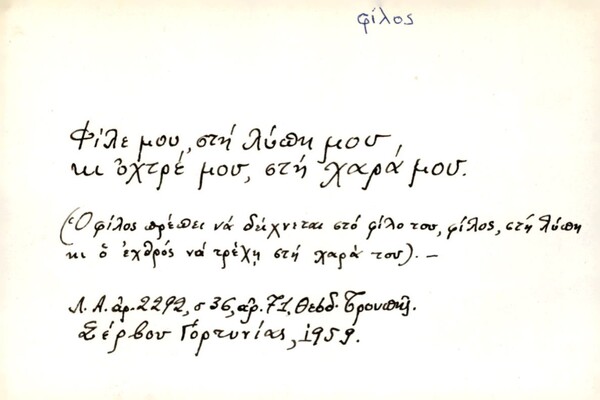 φίλος
Φίλε μου, στή λύπη μου
κι ὀχτρέ μου, στή χαρά μου.
(Ὁ φίλος πρέπει νά δείχνεται στό φίλο του, φίλος, στή λύπη
κι ὁ ἐχθρός νά τρέχῃ στή χαρά του). –
Λ. Α. ἀρ. 2292, σ 36, ἀρ. 71, Θεοδ.
Σέρβου Γορτυνίας, 1959.